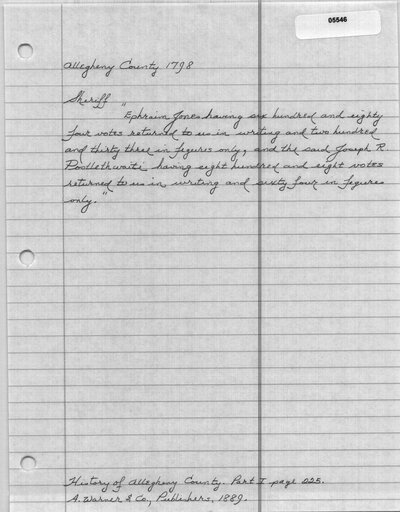 05546
Allegheny County 1798
Sheriff "
Ephraim Jones having six hundred and eighty
four votes returned to us in writing and two hundred
and thirty three in figures only, and the said Joseph R.
Postlethwaite having eight hundred and eight votes
returned to us in writing and sixty four in figures
only."
History of Allegheny County. Part I page 225.
A. Warner & Co., Publishers, 1889.